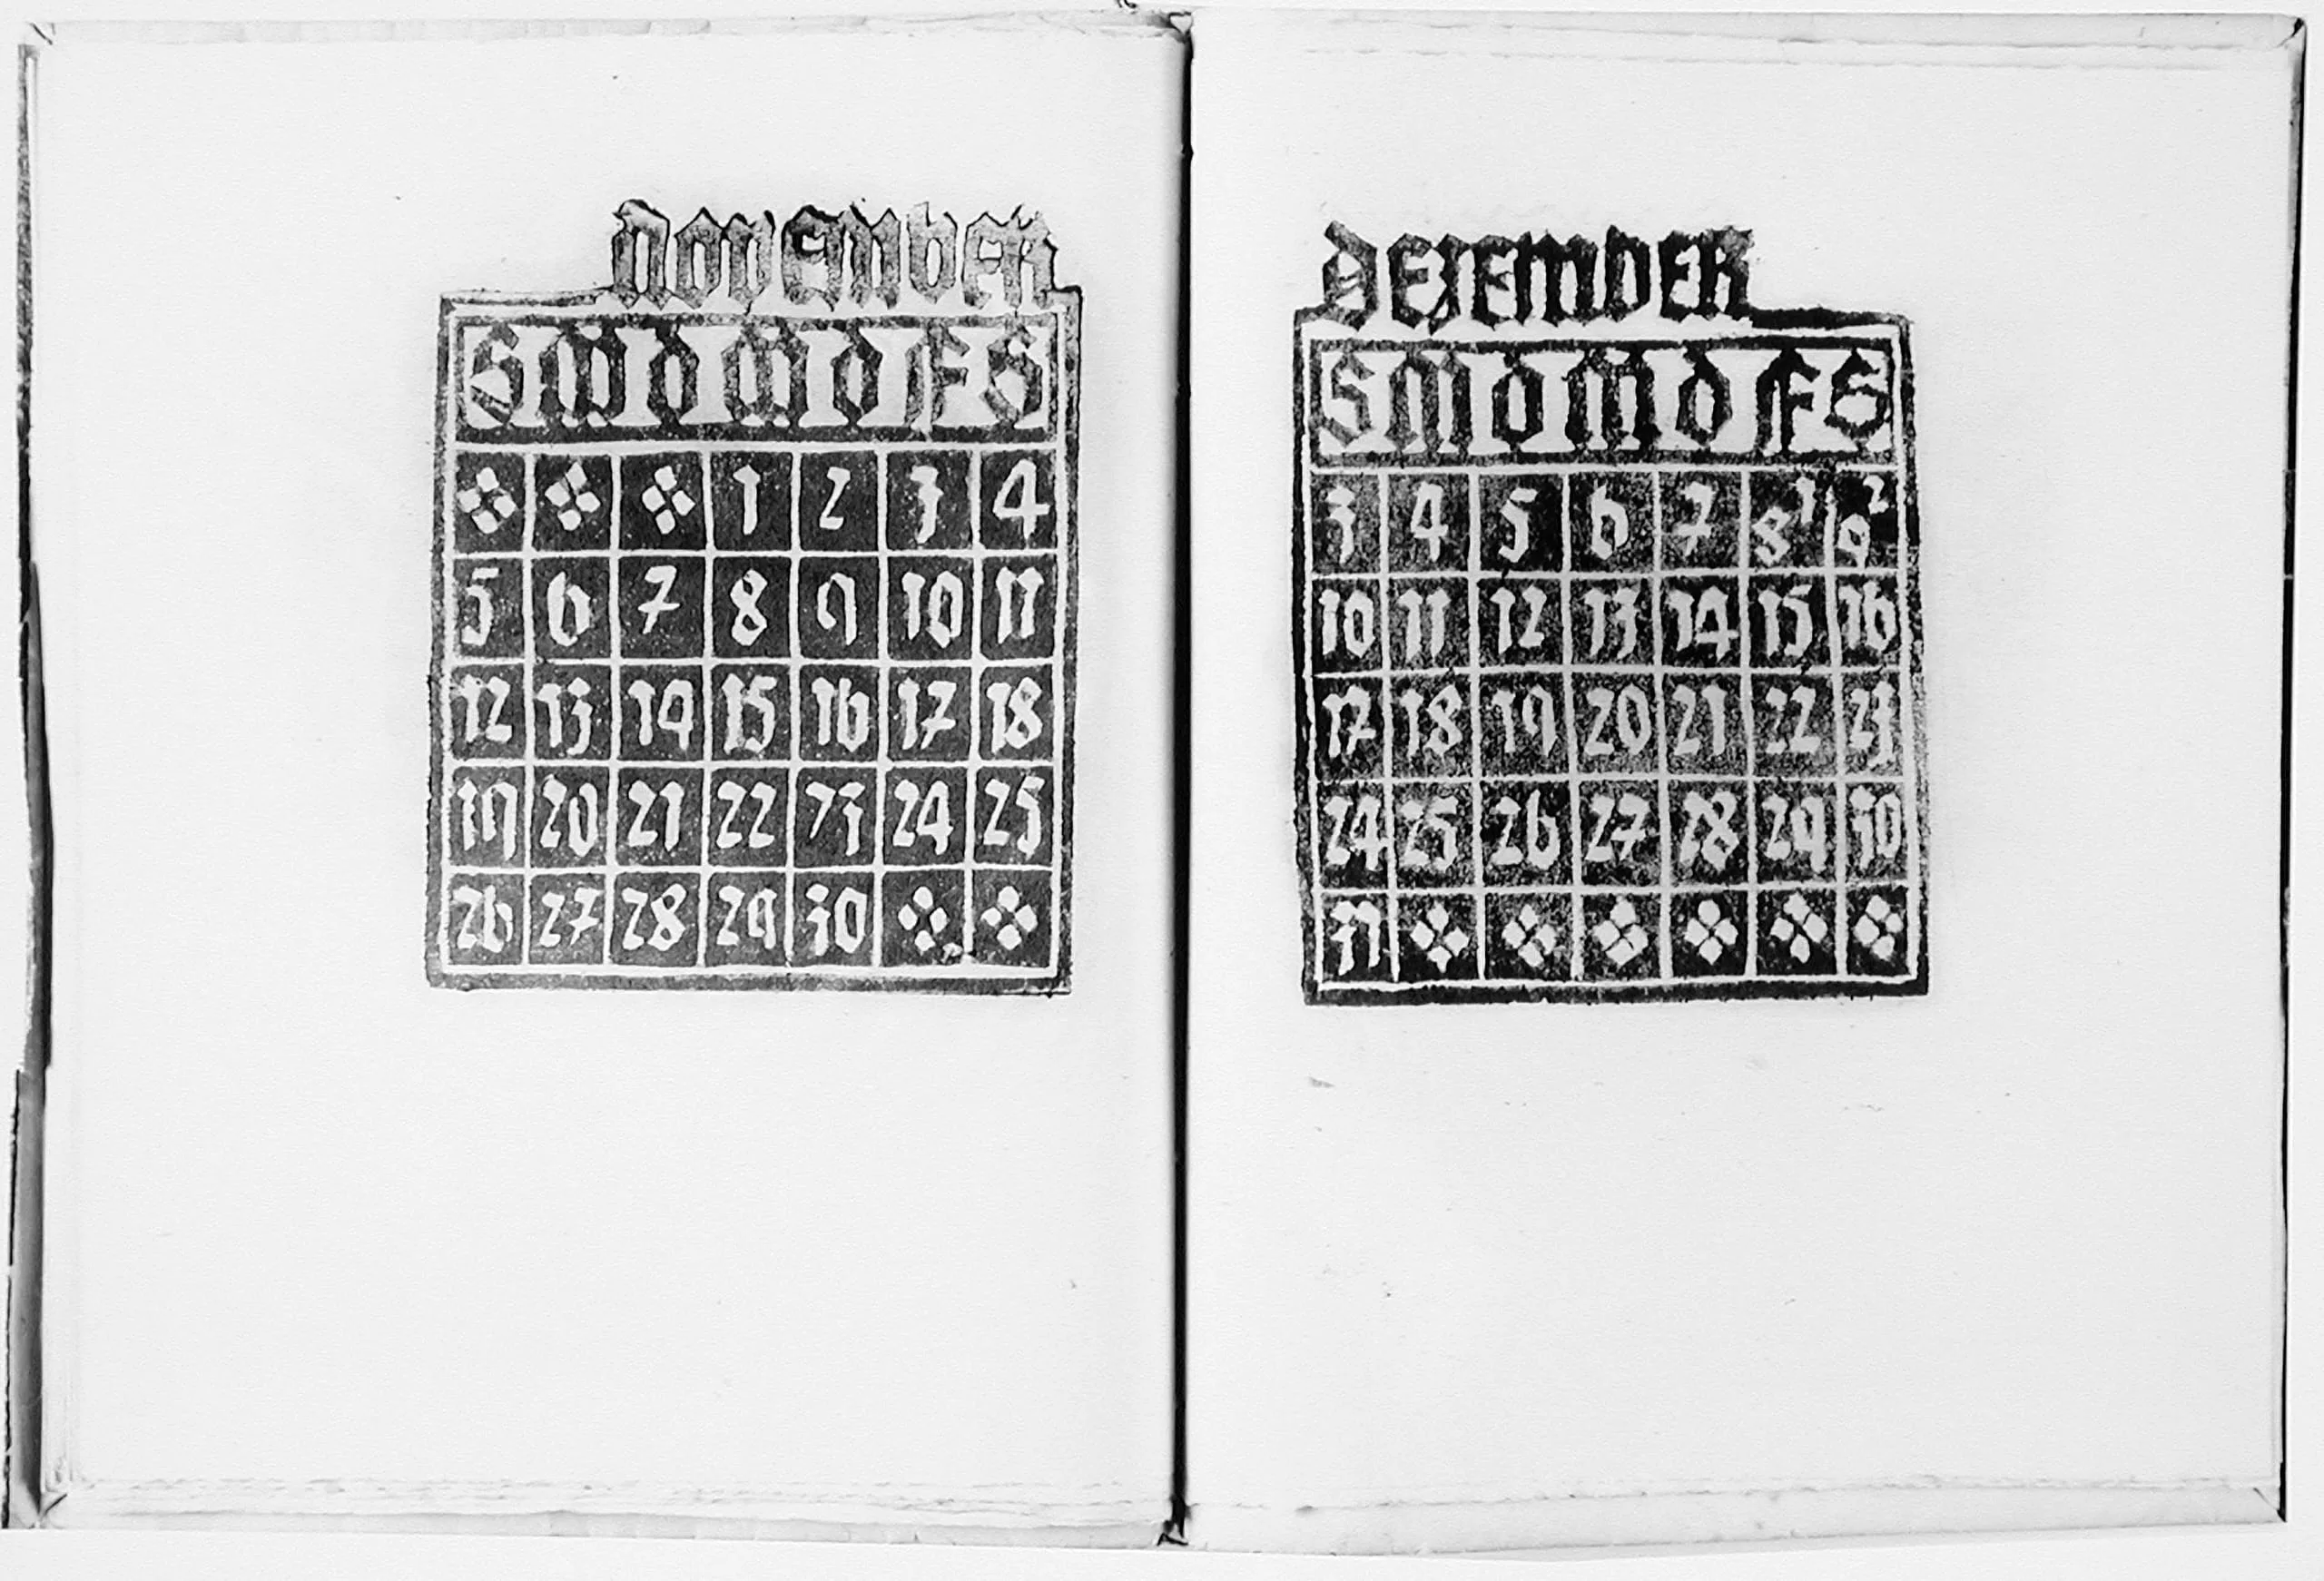 NOVEMBER
S M D M D F S
1 2 3 4
5 6 7 8 9 10 11
12 13 14 15 16 17 18
19 20 21 22 23 24 25
26 27 28 29 30
DEZEMBER
S M D M D F S
1 2
3 4 5 6 7 8 9
10 11 12 13 14 15 16
17 18 19 20 21 22 23
24 25 26 27 28 29 30
31